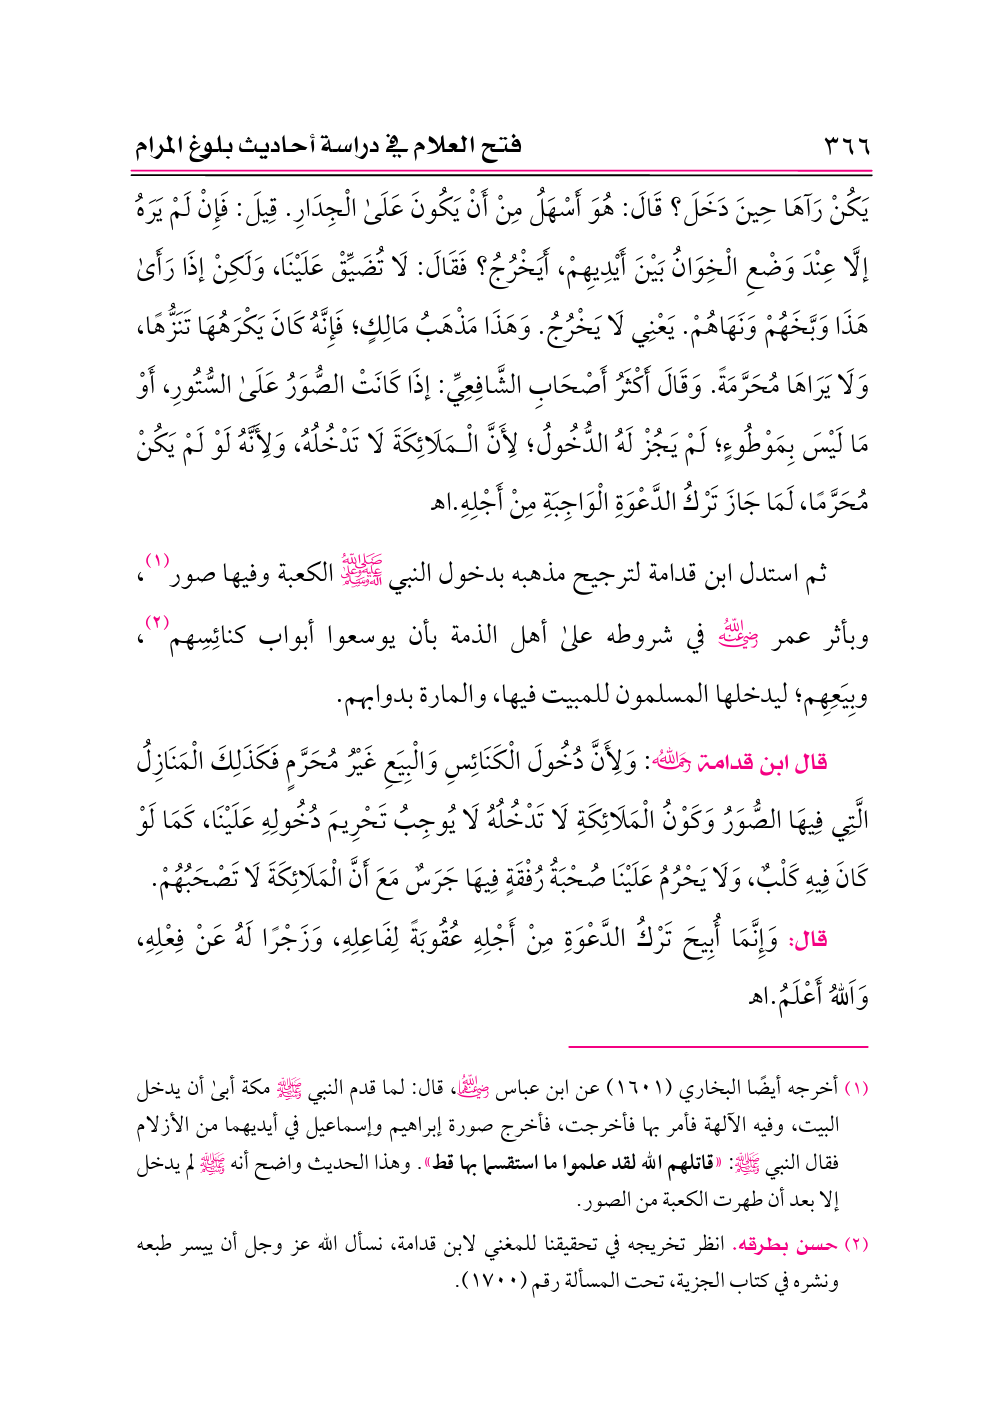 ٣٦٦ فتح العلام في دراسة أحاديث بلوغ المرام
يَكُنْ رَآهَا حِينَ دَخَلَ؟ قَالَ: هُوَ أَسْهَلُ مِنْ أَنْ يَكُونَ عَلَىٰ الْجِدَارِ. قِيلَ: فَإِنْ لَمْ يَرَهُ
إلَّا عِنْدَ وَضْعِ الْخِوَانُ بَيْنَ أَيْدِيهِمْ، أَيَخْرُجُ؟ فَقَالَ: لَا تُضَيِّقْ عَلَيْنَا، وَلَكِنْ إذَا رَأَىٰ
هَذَا وَبَّخَهُمْ وَنَهَاهُمْ. يَعْنِي لَا يَخْرُجُ. وَهَذَا مَذْهَبُ مَالِكٍ؛ فَإِنَّهُ كَانَ يَكْرَهُهَا تَنَزُّهًا،
وَلَا يَرَاهَا مُحَرَّمَةً. وَقَالَ أَكْثَرُ أَصْحَابِ الشَّافِعِيِّ: إذَا كَانَتْ الصُّوَرُ عَلَىٰ السُّتُورِ، أَوْ
مَا لَيْسَ بِمَوْطُوءٍ؛ لَمْ يَجُزْ لَهُ الدُّخُولُ؛ لِأَنَّ الْـمَلَائِكَةَ لَا تَدْخُلُهُ، وَلِأَنَّهُ لَوْ لَمْ يَكُنْ
مُحَرَّمًا، لَمَا جَازَ تَرْكُ الدَّعْوَةِ الْوَاجِبَةِ مِنْ أَجْلِهِ.اهـ
ثم استدل ابن قدامة لترجيح مذهبه بدخول النبي ﷺ الكعبة وفيها صور(١)،
وبأثر عمر رضي الله عنه في شروطه علىٰ أهل الذمة بأن يوسعوا أبواب كنائِسِهم(٢)،
وبِيَعِهِم؛ ليدخلها المسلمون للمبيت فيها، والمارة بدوابهم.
قال ابن قدامة رحمه الله: وَلِأَنَّ دُخُولَ الْكَنَائِسِ وَالْبِيَعِ غَيْرُ مُحَرَّمٍ فَكَذَلِكَ الْمَنَازِلُ
الَّتِي فِيهَا الصُّوَرُ وَكَوْنُ الْمَلَائِكَةِ لَا تَدْخُلُهُ لَا يُوجِبُ تَحْرِيمَ دُخُولِهِ عَلَيْنَا، كَمَا لَوْ
كَانَ فِيهِ كَلْبٌ، وَلَا يَحْرُمُ عَلَيْنَا صُحْبَةُ رُفْقَةٍ فِيهَا جَرَسٌ مَعَ أَنَّ الْمَلَائِكَةَ لَا تَصْحَبُهُمْ.
قال: وَإِنَّمَا أُبِيحَ تَرْكُ الدَّعْوَةِ مِنْ أَجْلِهِ عُقُوبَةً لِفَاعِلِهِ، وَزَجْرًا لَهُ عَنْ فِعْلِهِ،
وَاَللهُ أَعْلَمُ.اهـ
(١) أخرجه أيضًا البخاري (١٦٠١) عن ابن عباس رضي الله عنهما، قال: لما قدم النبي ﷺ مكة أبىٰ أن يدخل
البيت، وفيه الآلهة فأمر بها فأخرجت، فأخرج صورة إبراهيم وإسماعيل في أيديهما من الأزلام
فقال النبي ﷺ: «قاتلهم الله لقد علموا ما استقسما بها قط». وهذا الحديث واضح أنه ﷺ لم يدخل
إلا بعد أن طهرت الكعبة من الصور.
(٢) حسن بطرقه. انظر تخريجه في تحقيقنا للمغني لابن قدامة، نسأل الله عز وجل أن ييسر طبعه
ونشره في كتاب الجزية، تحت المسألة رقم (١٧٠٠).